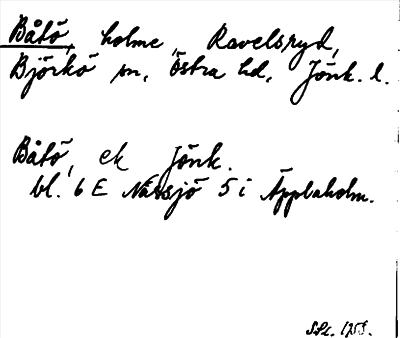 Båtö, holme, Ravelsryd,
Björkö sn, Östra hd, Jönk. l.
Båtö, ek Jönk.
bl. 6 E Nässjö 5 i Äpplaholm.